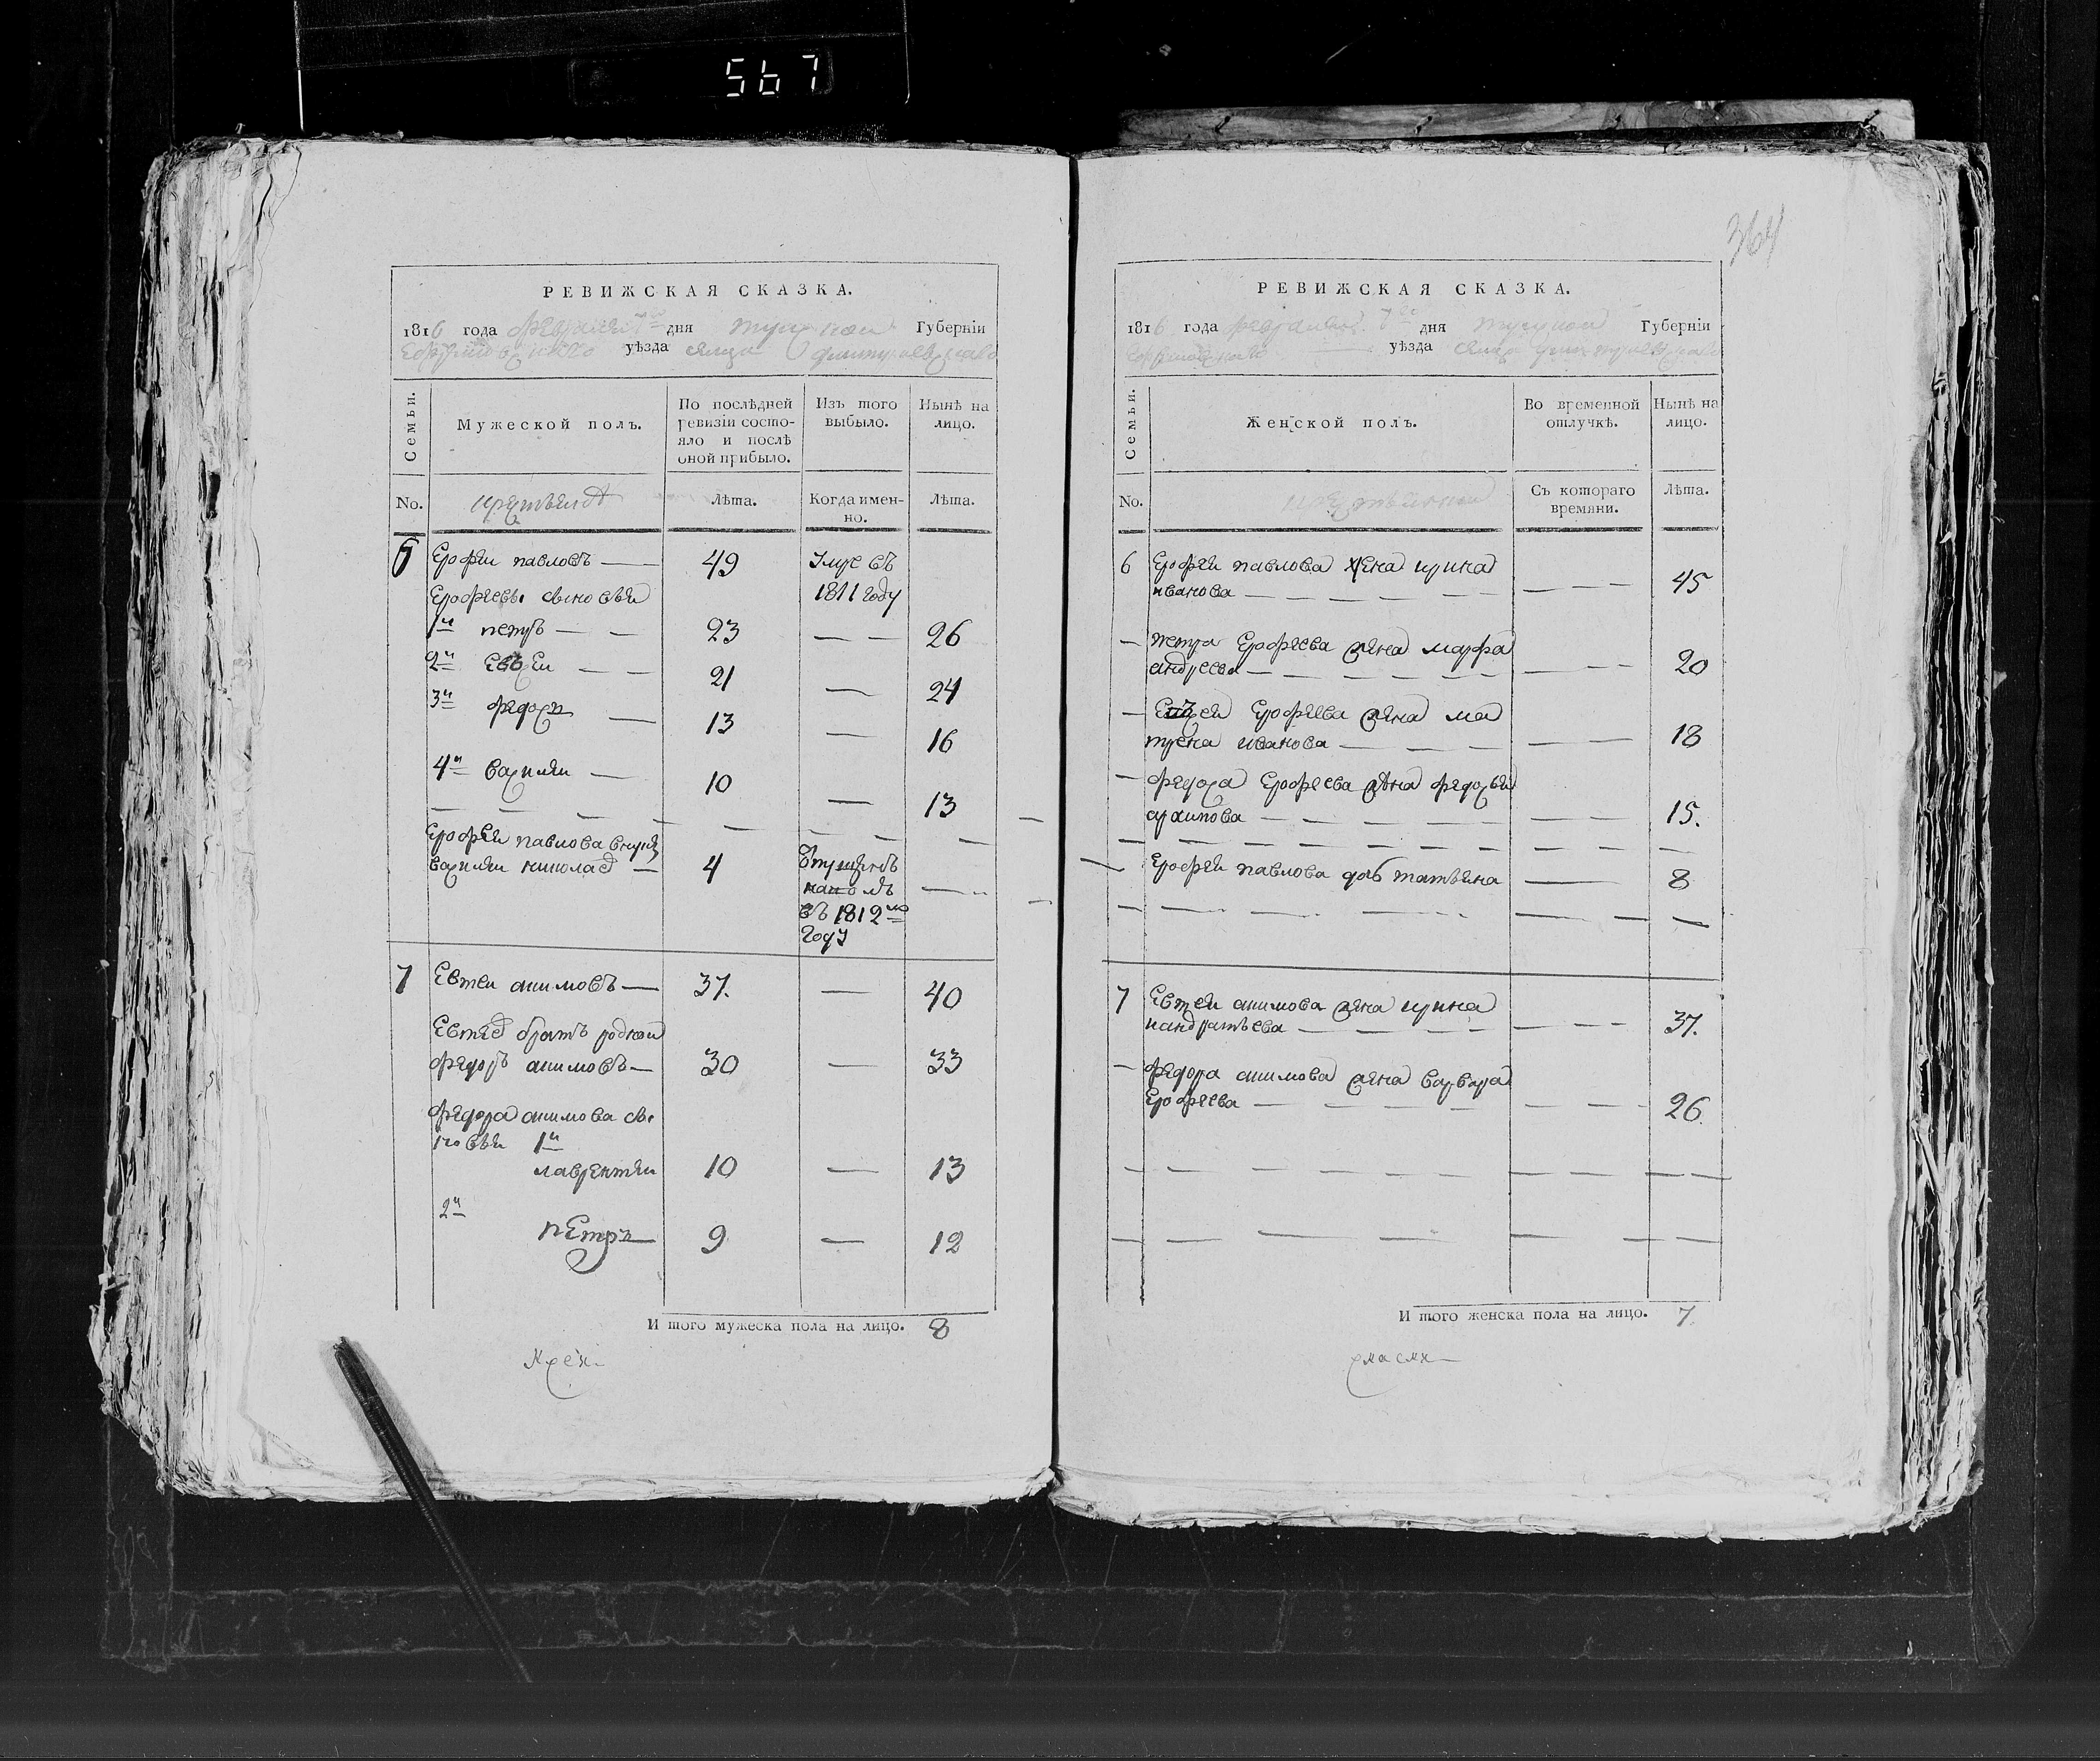 567
364
РЕВИЖСКАЯ СКАЗКА.
1816 года февраля 7го дня тульской Губерніи
Ефремовскаго уѣзда сельца
Семьи.
Мужеской полъ.
По послѣдней ревизіи состояло и послѣ оной прибыло.
Изъ того выбыло.
Нынѣ на лицо.
No.
Лѣта.
Когда именно.
Лѣта.
6 Ерофеи павловъ — 49 Умре въ
Ерофеевы сыновья 1811 году
1й петръ — — 23 — — 26
2й — — 21 — 24
3й федосъ — 13 — 16
4й василеи — 10 — 13
Ерофеи павлова внукъ
василеи — 4
въ 1812мъ
году
7 Евтеи акимовъ — 37. — 40
Евтея братъ родной
федоръ акимовъ — 30 — 33
федора акимова сы
новья 1й
лаврентеи 10 — 13
2й
петръ — 9 — 12
И того мужеска пола на лицо. 8
РЕВИЖСКАЯ СКАЗКА.
1816 года февраля 7го дня тульской Губерніи
Ефремовскаго уѣзда сельца
Семьи.
Женской полъ.
Во временной отлучкѣ.
Нынѣ на лицо.
No.
Съ котораго времяни.
Лѣта.
6 Ерофеи павлова жена ирина
иванова — — — 45
— петра Ерофеева жена марфа
андреева — — — 20
— Ерофеева жена ма
трена иванова — — — 18
— федоса Ерофеева жена федосья
архипова — — — 15.
Ерофеи павлова дочь татьяна — 8
7 Евтеи акимова жена ирина
кандратьева — — — 37.
— федора акимова жена варвара
Ерофеева — — — 26.
И того женска пола на лицо. 7